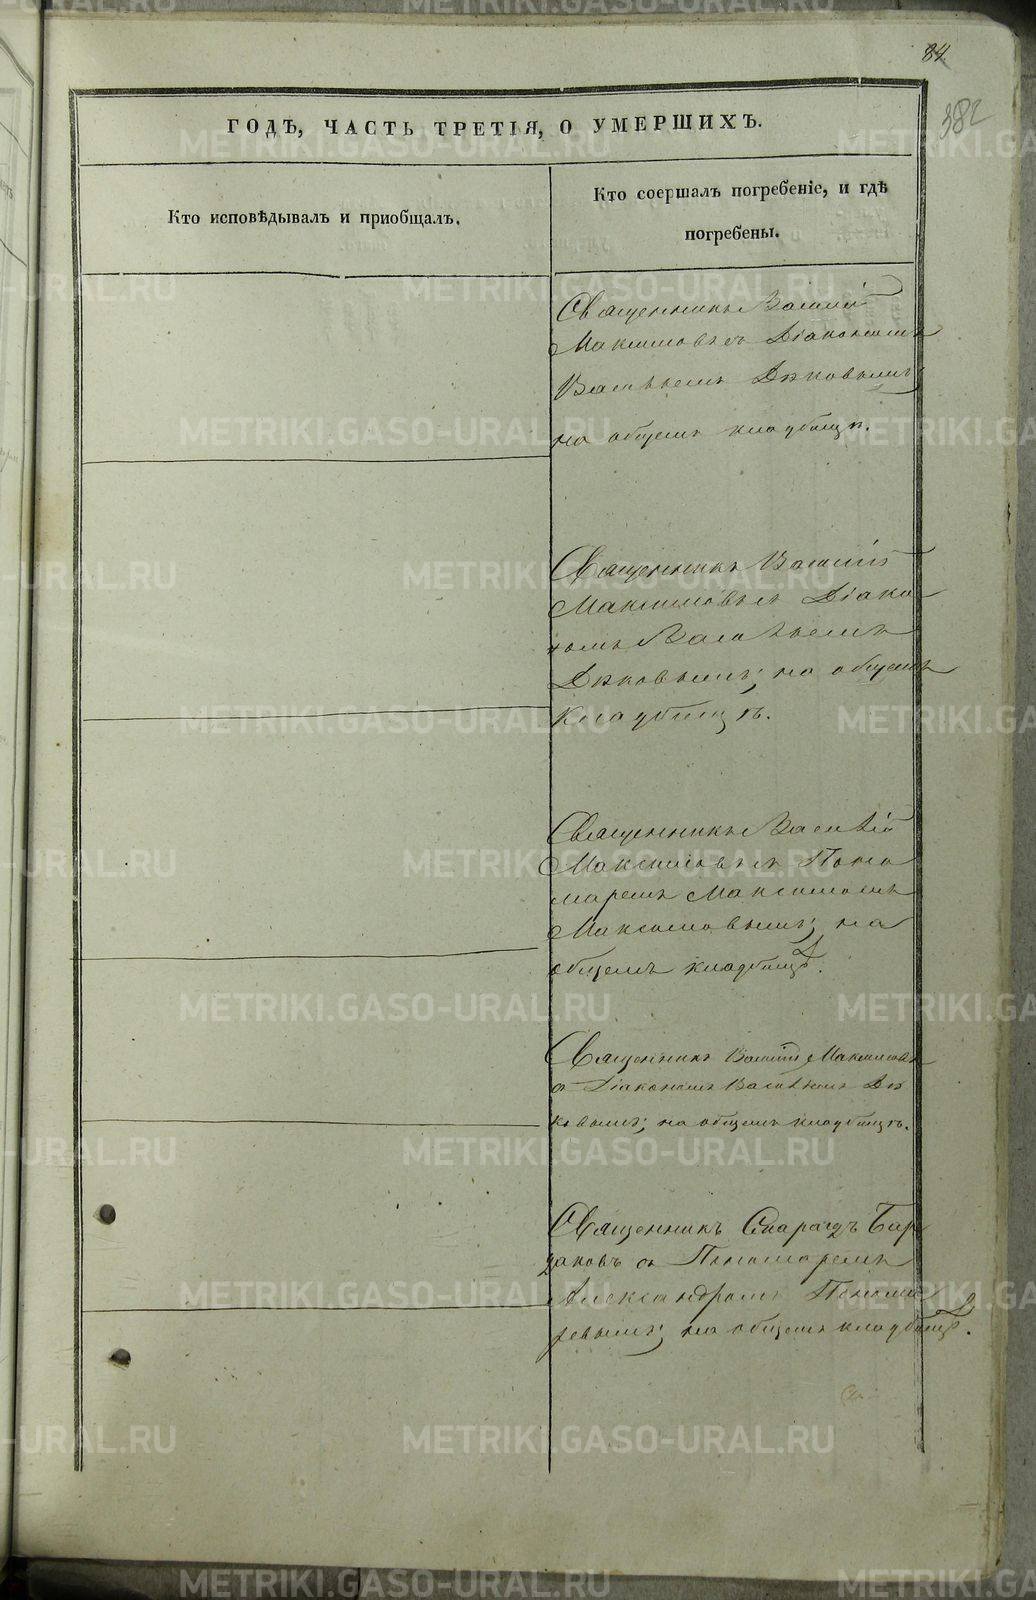 84
382
ГОДЪ, ЧАСТЬ ТРЕТІЯ, О УМЕРШИХЪ.
Кто исповѣдывалъ и приобщалъ.
Кто соершалъ погребеніе, и гдѣ
погребены.
Священникъ Василій
Максимовъ съ Діакономъ
Васильемъ Дьковымъ;
на общемъ кладбищѣ.
Священникъ Василій
Максимовъ съ Діако
номъ Васильемъ
Дьковымъ; на общемъ
кладбищѣ.
Священникъ Василій
Максимовъ съ Поно
маремъ Максимомъ
Максимовымъ; на
общемъ кладбищѣ.
Священникъ Василій Максимовъ
съ Діакономъ Васильемъ Дь
ковымъ; на общемъ кладбищѣ.
Священникъ Смарагдъ Бир
цаковъ съ Пономаремъ
Александромъ Понома
ревымъ; на общемъ кладбищѣ.
METRIKI.GASO-URAL.RU